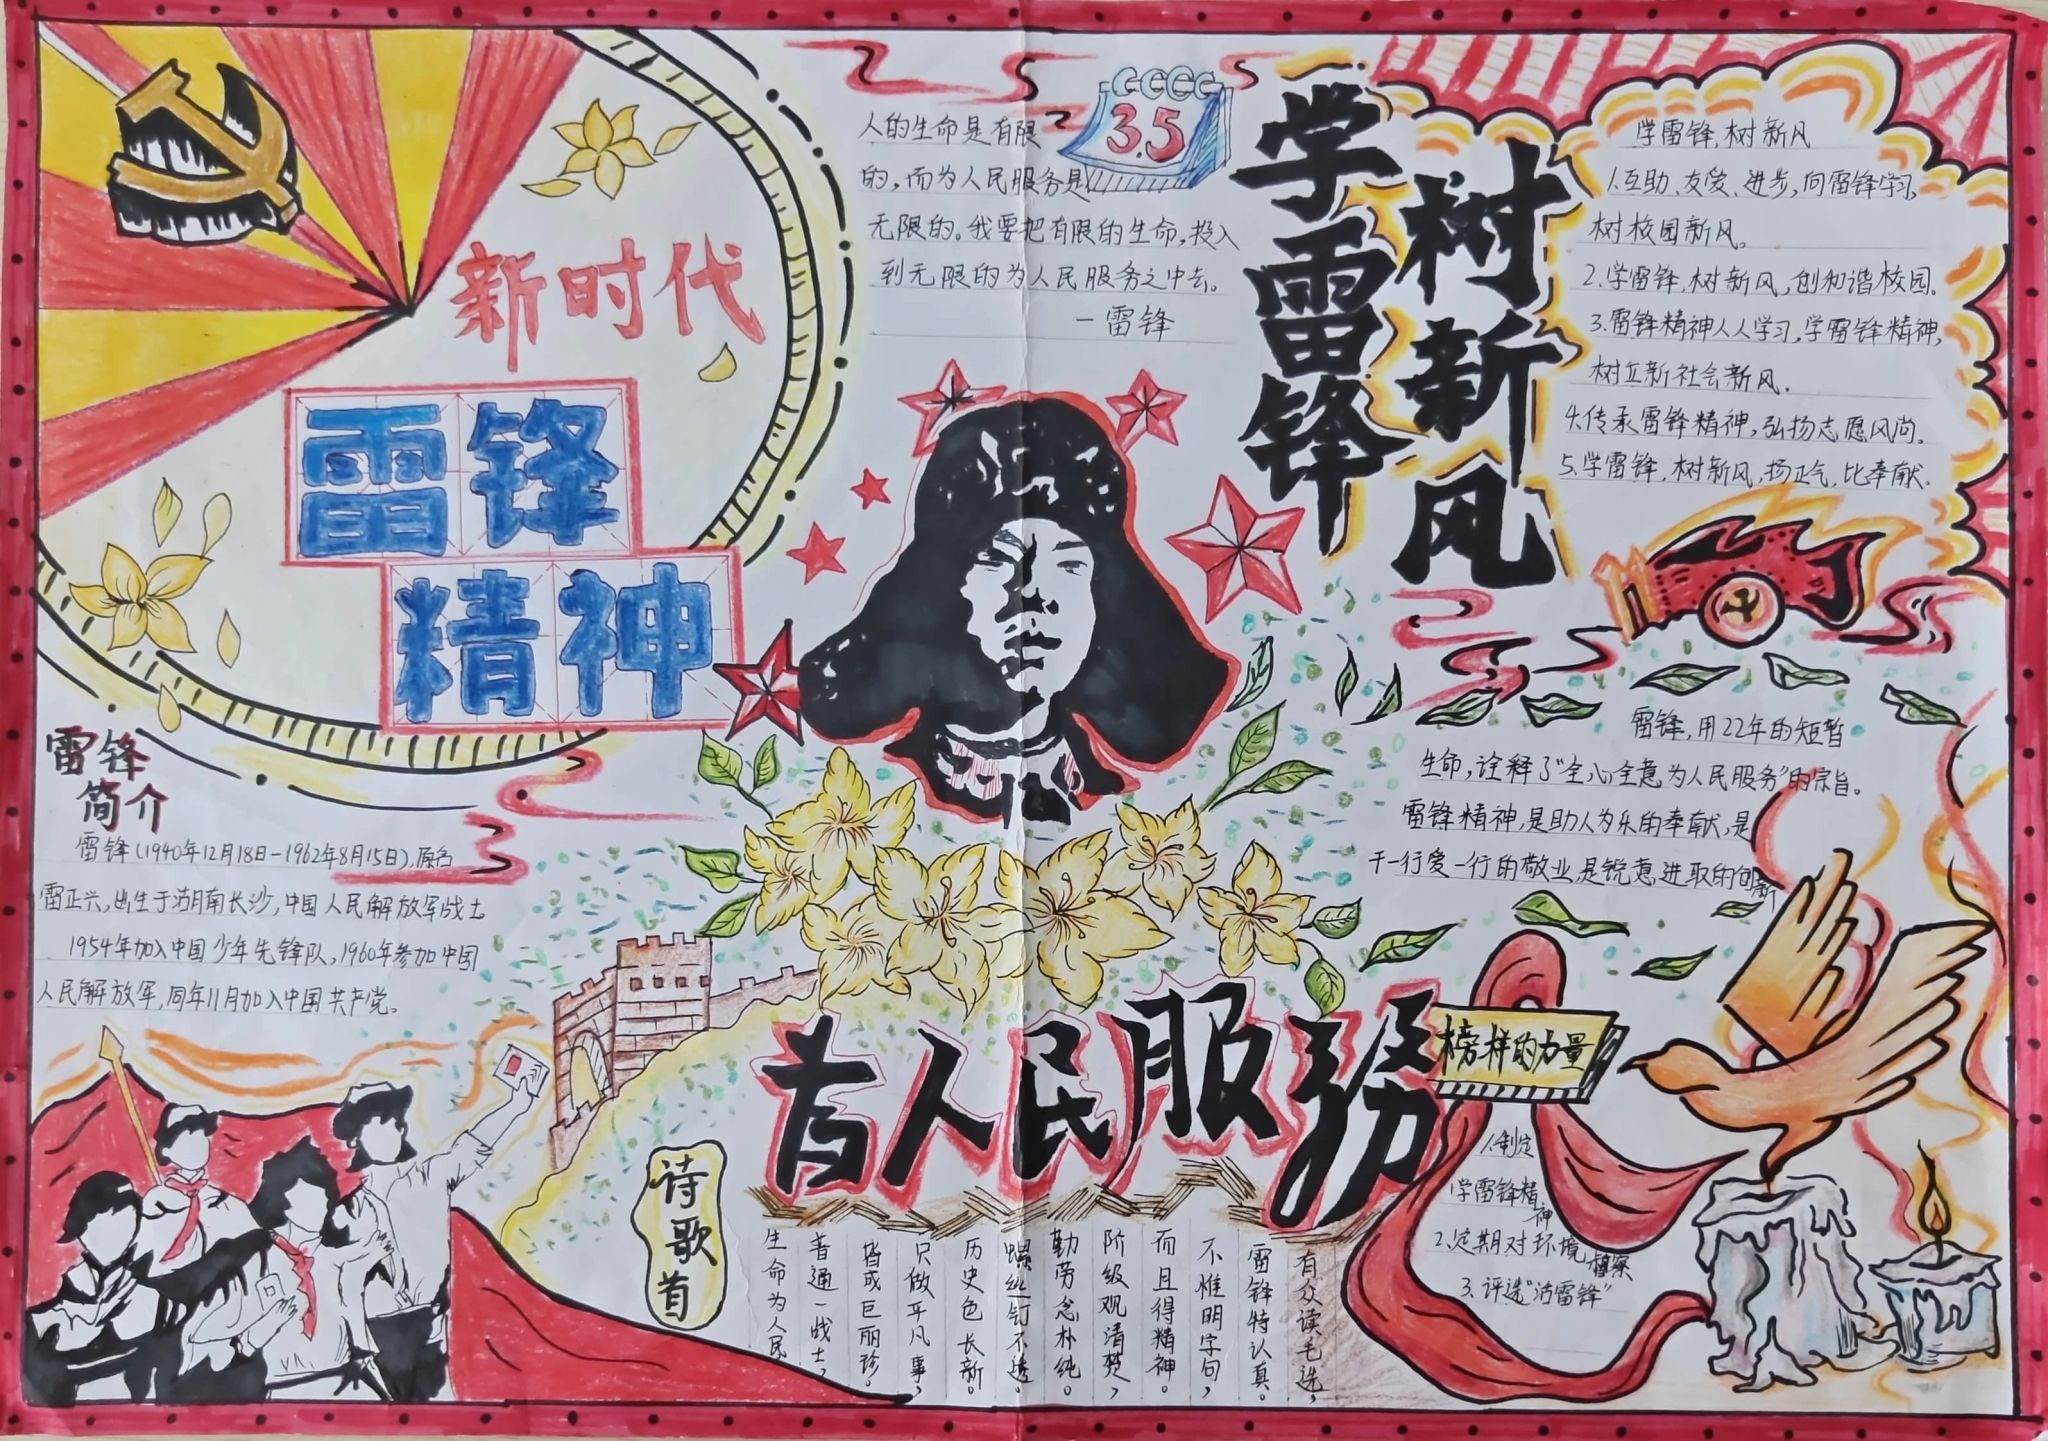 新时代
雷锋
精神
人的生命是有限
的,而为人民服务是
无限的。我要把有限的生命,投入
到无限的为人民服务之中去。
—雷锋
3.5
学雷锋
树新风
学雷锋,树新风
1.互助、友爱、进步,向雷锋学习,
树校园新风。
2.学雷锋,树新风,创和谐校园。
3.雷锋精神人人学习,学雷锋精神,
树立新社会新风.
4.传承雷锋精神,弘扬志愿风尚.
5.学雷锋,树新风,扬正气,比奉献.
雷锋,用22年的短暂
生命,诠释了“全心全意为人民服务”的宗旨。
雷锋精神,是助人为乐的奉献,是
干一行爱一行的敬业,是锐意进取的创新
雷锋
简介
雷锋(1940年12月18日-1962年8月15日),原名
雷正兴,出生于湖南长沙,中国人民解放军战士
1954年加入中国少年先锋队,1960年参加中国
人民解放军,同年11月加入中国共产党。
为人民服務
榜样的力量
1.制定
学雷锋精神
2.定期对环境
3.评选“活雷锋”
诗歌首
有众读毛选,
雷锋特认真。
不惟明字句,
而且得精神。
阶级观清楚,
勤劳念朴纯。
螺丝钉不透。
历史色长新。
只做平凡事,
皆成巨丽珍。
普通一战士,
生命为人民